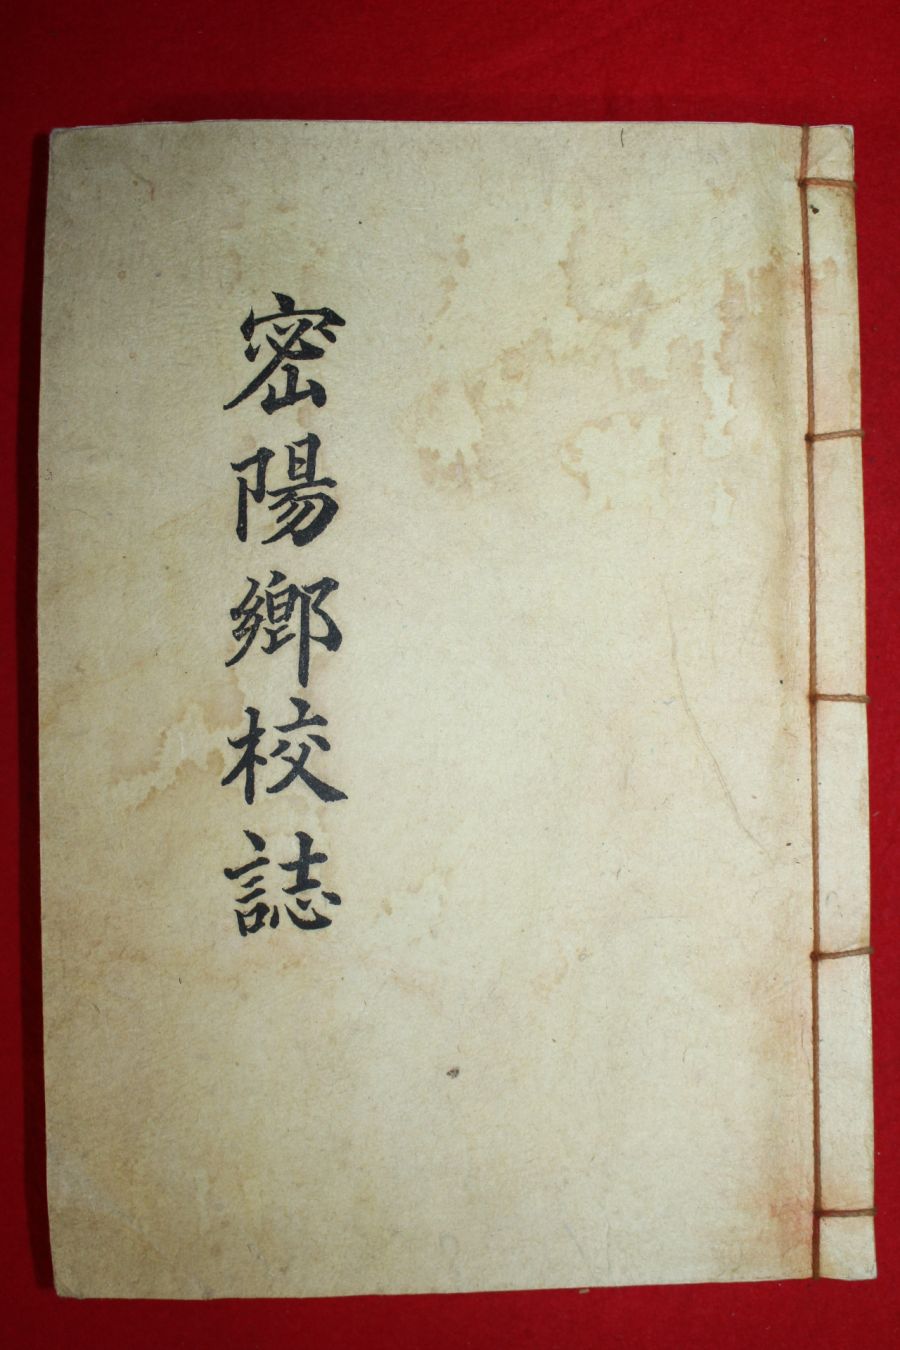 密陽鄉校誌